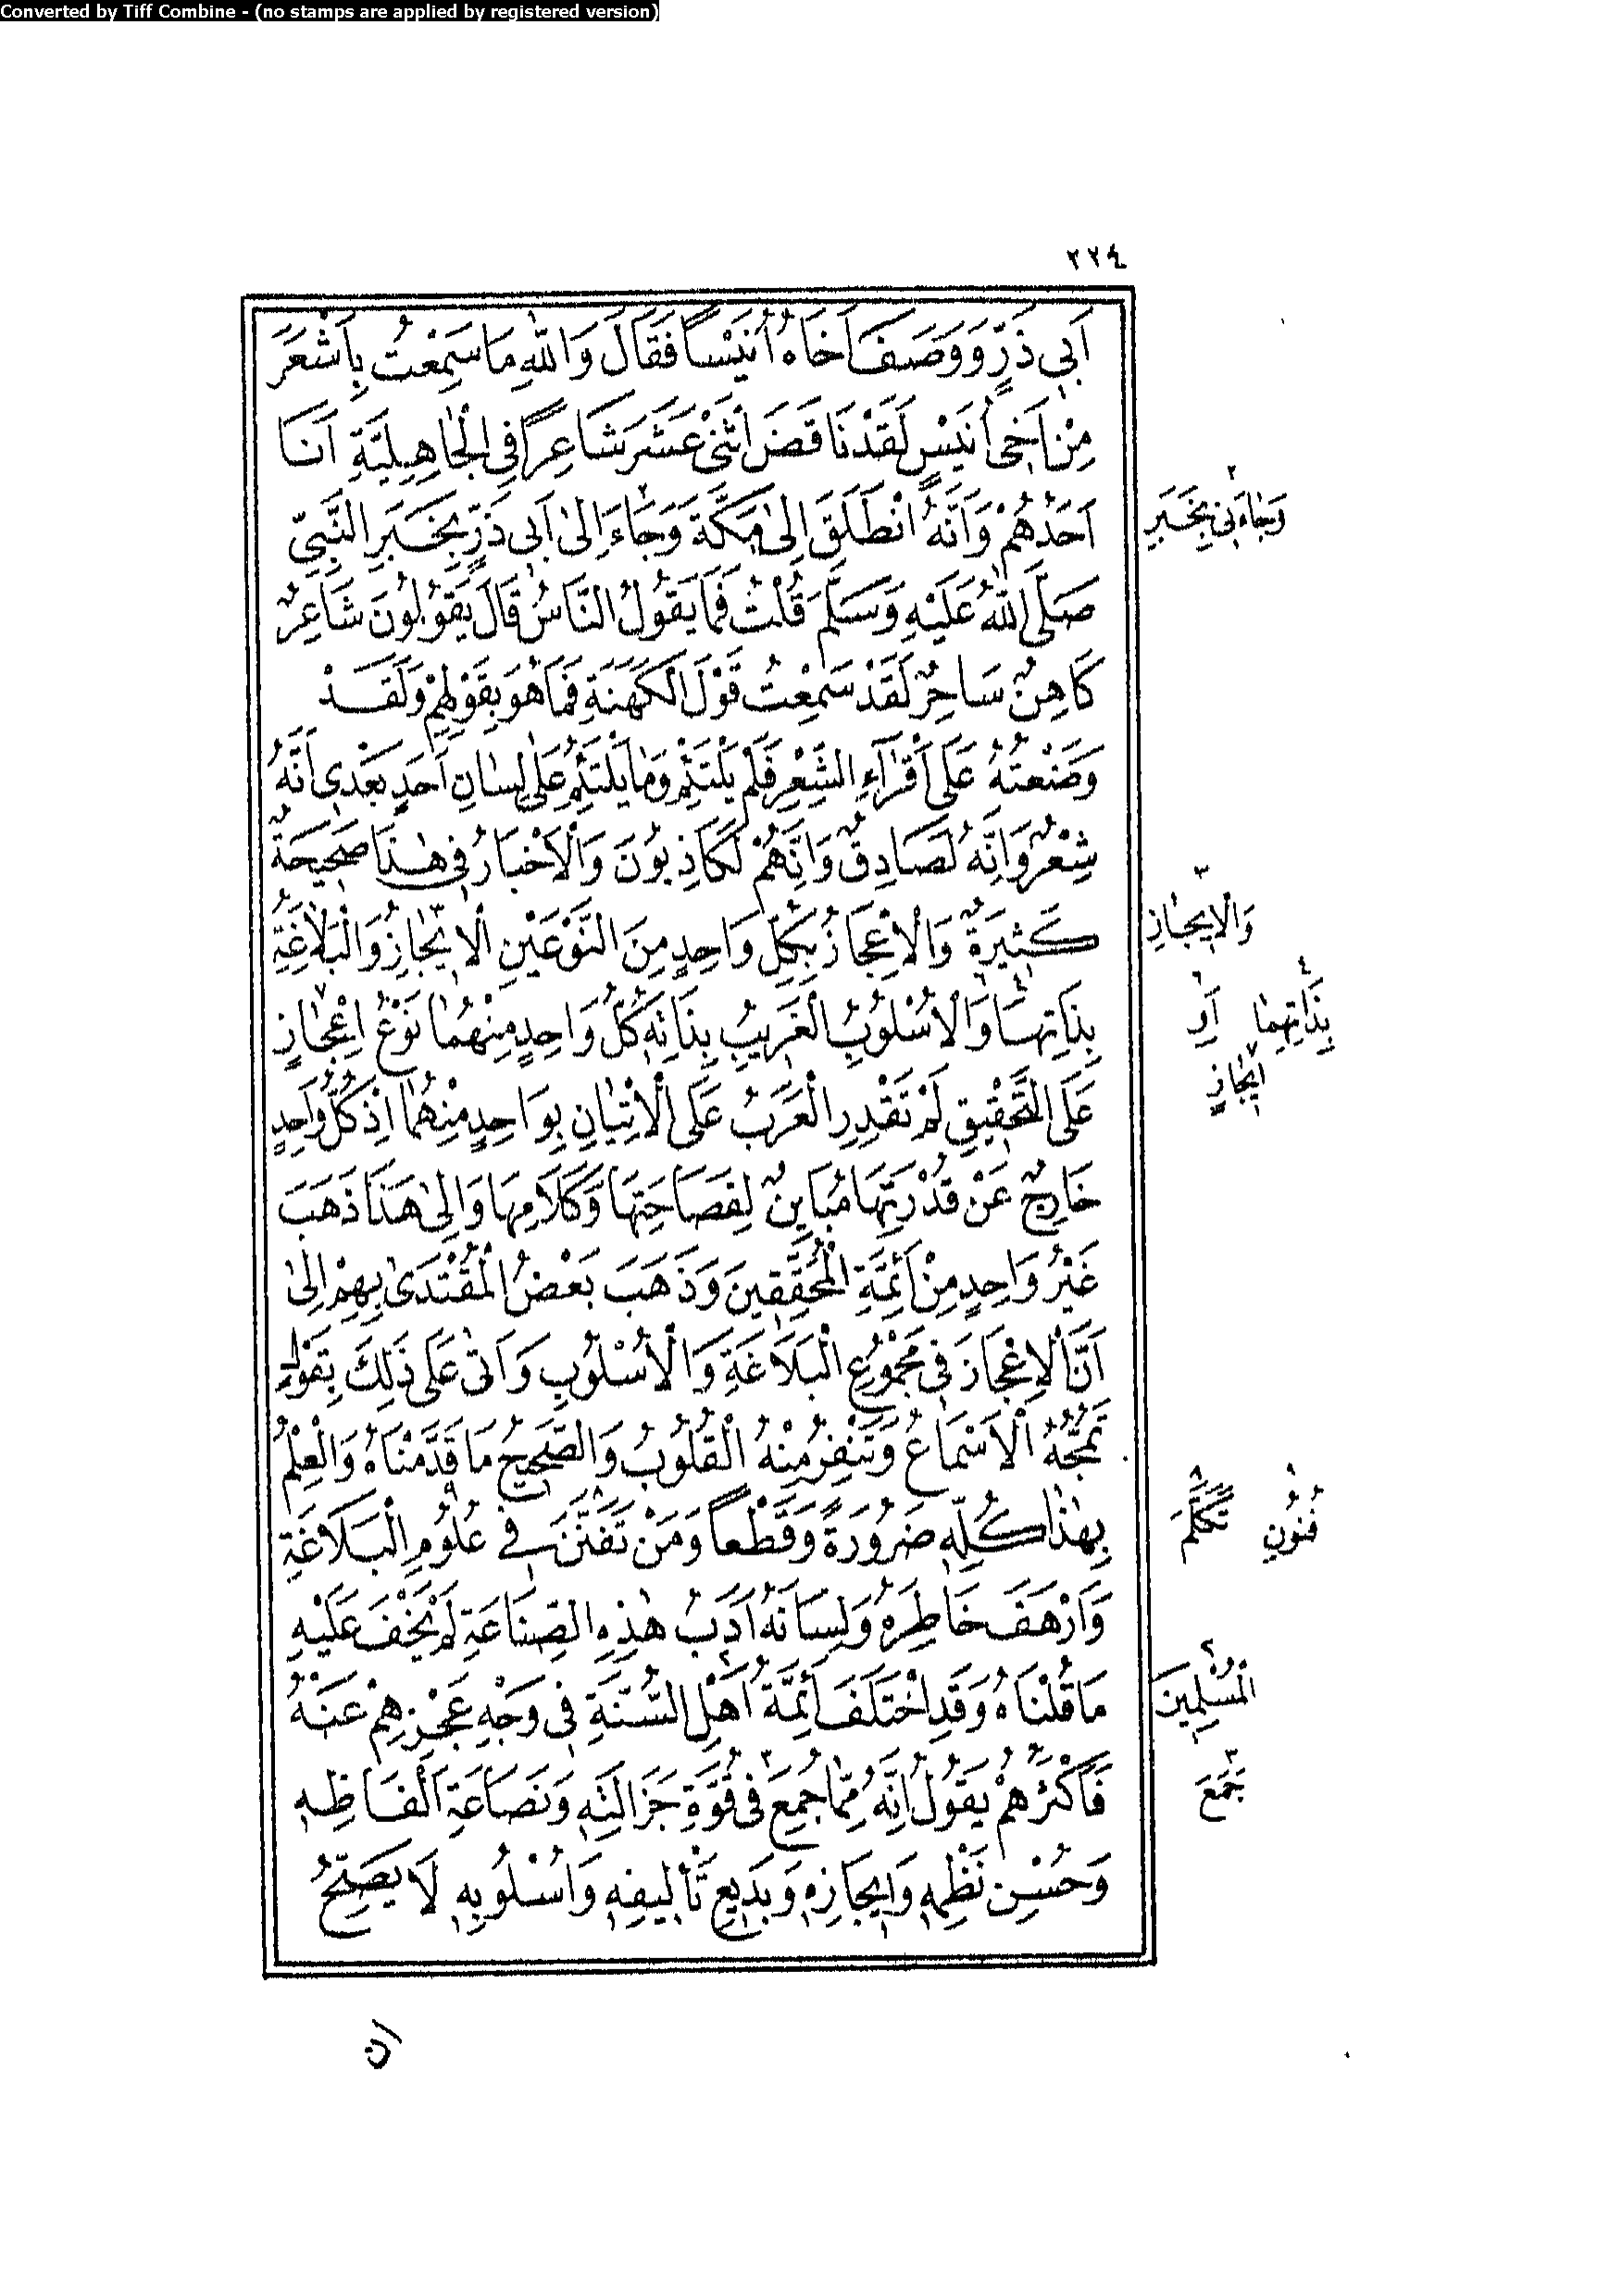 Converted by Tiff Combine - (no stamps are applied by registered version)
٢٢٤
اَبِي ذَرٍّ وَوَصَفَ اَخَاهُ أُنَيْسًا فَقَالَ وَاللّٰهِ مَا سَمِعْتُ بِاَشْعَرَ
مِنْ اَخِي أُنَيْسٍ لَقَدْ نَاقَضَ اثْنَيْ عَشَرَ شَاعِرًا فِي الْجَاهِلِيَّةِ اَنَا
اَحَدُهُمْ وَاَنَّهُ انْطَلَقَ اِلَى مَكَّةَ وَجَاءَ اِلَى اَبِي ذَرٍّ بِخَبَرِ النَّبِيِّ
صَلَّى اللّٰهُ عَلَيْهِ وَسَلَّمَ قُلْتُ فَمَا يَقُولُ النَّاسُ قَالَ يَقُولُونَ شَاعِرٌ
كَاهِنٌ سَاحِرٌ لَقَدْ سَمِعْتُ قَوْلَ الْكَهَنَةِ فَمَا هُوَ بِقَوْلِهِمْ وَلَقَدْ
وَضَعْتُهُ عَلَى أَقْرَاءِ الشِّعْرِ فَلَمْ يَلْتَئِمْ وَمَا يَلْتَئِمُ عَلَى لِسَانِ اَحَدٍ بَعْدِي اَنَّهُ
شِعْرٌ وَاِنَّهُ لَصَادِقٌ وَاِنَّهُمْ لَكَاذِبُونَ وَالْاَخْبَارُ فِي هٰذَا صَحِيحَةٌ
كَثِيرَةٌ وَالْاِعْجَازُ بِكُلِّ وَاحِدٍ مِنَ النَّوْعَيْنِ الْاِيجَازُ وَالْبَلَاغَةُ
بِذَاتِهَا وَالْاُسْلُوبُ الْغَرِيبُ بِذَاتِهِ كُلُّ وَاحِدٍ مِنْهُمَا نَوْعُ اِعْجَازٍ
عَلَى التَّحْقِيقِ لَمْ تَقْدِرِ الْعَرَبُ عَلَى الْاِتْيَانِ بِوَاحِدٍ مِنْهُمَا اِذْ كُلُّ وَاحِدٍ
خَارِجٌ عَنْ قُدْرَتِهَا مُبَايِنٌ لِفَصَاحَتِهَا وَكَلَامِهَا وَاِلَى هَذَا ذَهَبَ
غَيْرُ وَاحِدٍ مِنْ اَئِمَّةِ الْمُحَقِّقِينَ وَذَهَبَ بَعْضُ الْمُقْتَدَى بِهِمْ اِلَى
اَنَّ الْاِعْجَازَ فِي مَجْمُوعِ الْبَلَاغَةِ وَالْاُسْلُوبِ وَاَتَى عَلَى ذَلِكَ بِقَوْلٍ
تَمُجُّهُ الْاَسْمَاعُ وَتَنْفِرُ مِنْهُ الْقُلُوبُ وَالصَّحِيحُ مَا قَدَّمْنَاهُ وَالْعِلْمُ
بِهٰذَا كُلِّهِ ضَرُورَةً وَقَطْعًا وَمَنْ تَفَنَّنَ فِي عُلُومِ الْبَلَاغَةِ
وَاَرْهَفَ خَاطِرَهُ وَلِسَانَهُ اَدَبُ هٰذِهِ الصِّنَاعَةِ لَمْ يَخْفَ عَلَيْهِ
مَا قُلْنَاهُ وَقَدِ اخْتَلَفَ اَئِمَّةُ اَهْلِ السُّنَّةِ فِي وَجْهِ عَجْزِهِمْ عَنْهُ
فَاَكْثَرُهُمْ يَقُولُ اِنَّهُ مِمَّا جُمِعَ فِي قُوَّةِ جَزَالَتِهِ وَنَصَاعَةِ اَلْفَاظِهِ
وَحُسْنِ نَظْمِهِ وَاِيجَازِهِ وَبَدِيعِ تَأْلِيفِهِ وَاُسْلُوبِهِ لَا يَصِحُّ
٢
وَجَاءَنِي بِخَبَرِ
٣
وَالْاِيجَازِ
٤ ٦
بِذَاتِهِمَا اَوِ
٧
اِيجَازٍ
٩ ٨
فُنُونِ تَكَلَّمَ
٢
الْمُسْلِمِينَ
٣
جَمَعَ